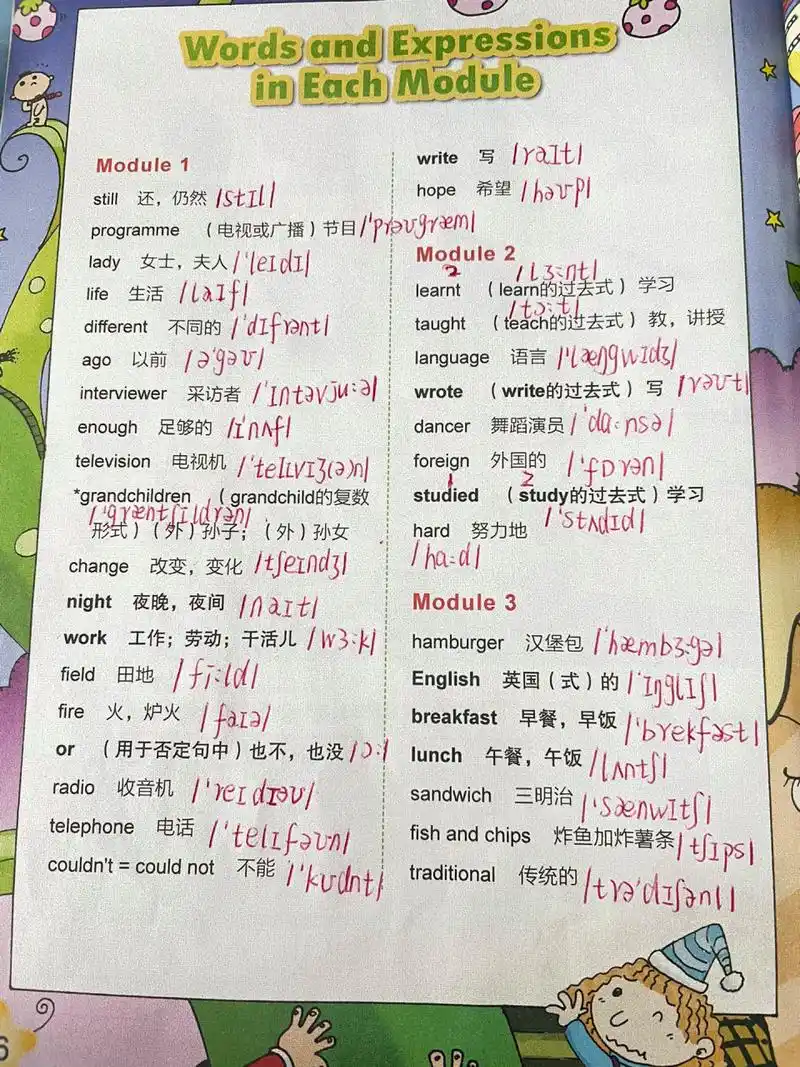 Words and Expressions
in Each Module
Module 1
still 还，仍然 /stɪl/
programme （电视或广播）节目 /ˈprəʊgræm/
lady 女士，夫人 /ˈleɪdɪ/
life 生活 /laɪf/
different 不同的 /ˈdɪfrənt/
ago 以前 /əˈgəʊ/
interviewer 采访者 /ˈɪntəvjuːə/
enough 足够的 /ɪˈnʌf/
television 电视机 /ˈtelɪvɪʒ(ə)n/
*grandchildren （grandchild的复数
/ˈgræntʃɪldrən/
形式）（外）孙子；（外）孙女
change 改变，变化 /tʃeɪndʒ/
night 夜晚，夜间 /naɪt/
work 工作；劳动；干活儿 /wɜːk/
field 田地 /fiːld/
fire 火，炉火 /faɪə/
or （用于否定句中）也不，也没 /ɔː/
radio 收音机 /ˈreɪdɪəʊ/
telephone 电话 /ˈtelɪfəʊn/
couldn't = could not 不能 /ˈkʊdnt/
write 写 /raɪt/
hope 希望 /həʊp/
Module 2
2 /lɜːnt/
learnt （learn的过去式）学习
/tɔːt/
taught （teach的过去式）教，讲授
language 语言 /ˈlæŋgwɪdʒ/
wrote （write的过去式）写 /rəʊt/
dancer 舞蹈演员 /ˈdɑːnsə/
foreign 外国的 /ˈfɒrən/
1 2
studied （study的过去式）学习
/ˈstʌdɪd/
hard 努力地
/hɑːd/
Module 3
hamburger 汉堡包 /ˈhæmbɜːgə/
English 英国（式）的 /ˈɪŋglɪʃ/
breakfast 早餐，早饭 /ˈbrekfəst/
lunch 午餐，午饭 /lʌntʃ/
sandwich 三明治 /ˈsænwɪtʃ/
fish and chips 炸鱼加炸薯条 /tʃɪps/
traditional 传统的 /trəˈdɪʃənl/
6